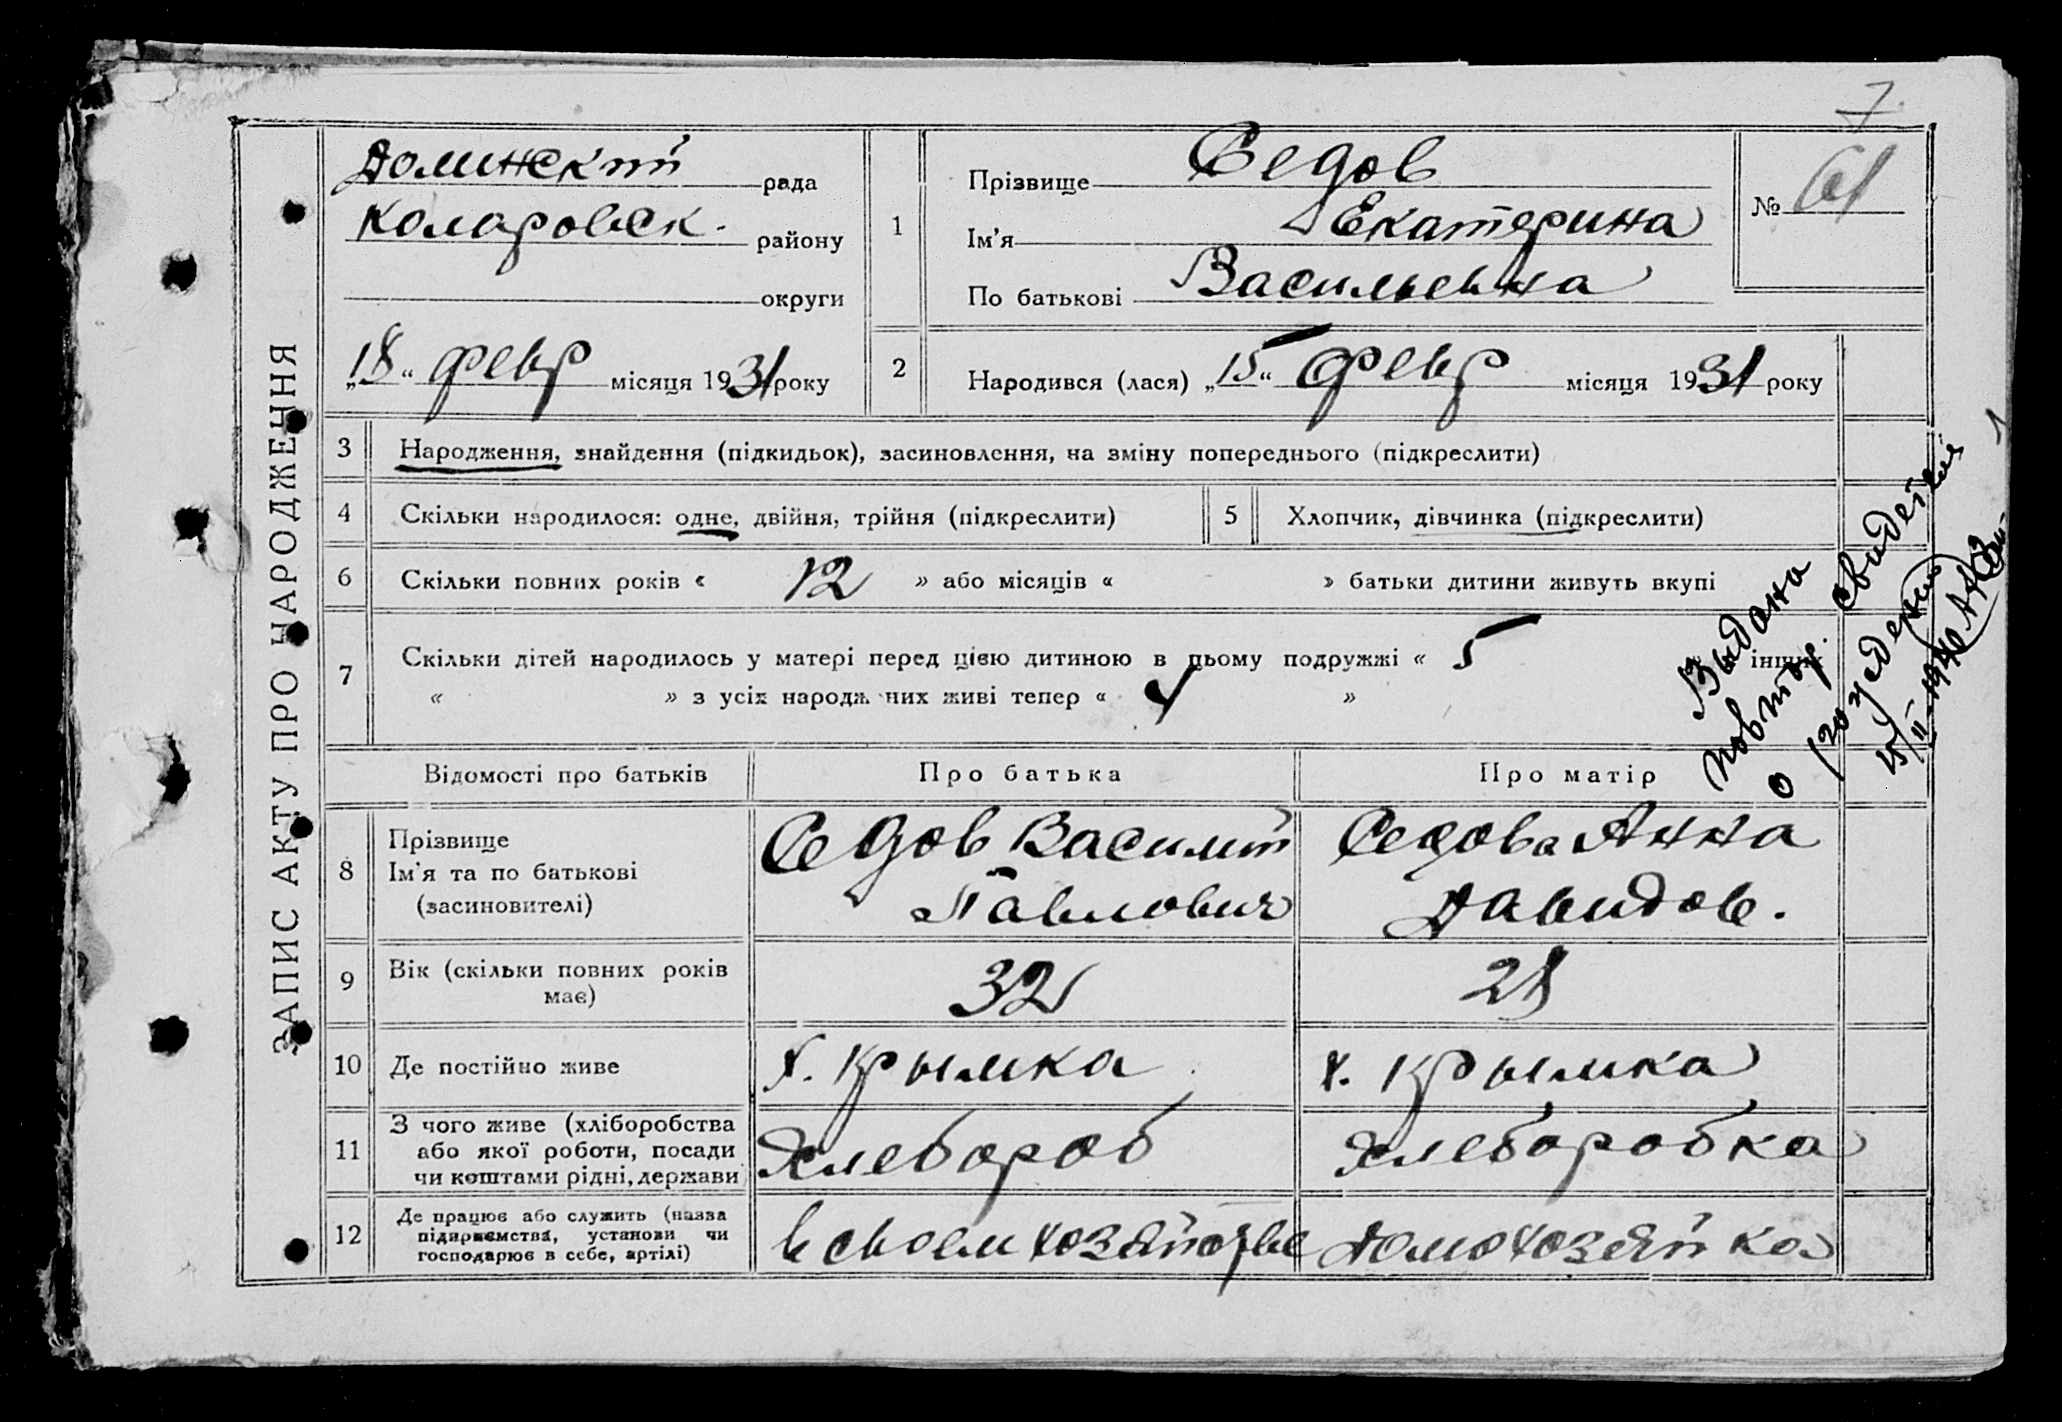 7
ЗАПИС АКТУ ПРО НАРОДЖЕННЯ
Долинский рада
Коларовск. району
округи
„18“ февр місяця 1931 року
1
Прізвище Седов
Ім'я Екатерина
По батькові Васильевна
№ 61
2 Народився (лася) „15“ февр місяця 1931 року
3 Народження, знайдення (підкидьок), засиновлення, на зміну попереднього (підкреслити)
4 Скільки народилося: одне, двійня, трійня (підкреслити) 5 Хлопчик, дівчинка (підкреслити)
6 Скільки повних років « 12 » або місяців « » батьки дитини живуть вкупі
7 Скільки дітей народилось у матері перед цією дитиною в цьому подружжі « 5
« » з усіх народжених живі тепер « »
Выдана
повтор. свидетел
о рождении
15/II-1940
Відомості про батьків Про батька Про матір
8 Прізвище
Ім'я та по батькові
(засиновителі)
Седов Василий
Павлович
Седова Анна
Давидов.
9 Вік (скільки повних років
має)
32
28
10 Де постійно живе х. Крымка х. Крымка
11 З чого живе (хліборобства
або якої роботи, посади
чи коштами рідні, держави
Хлебороб
Хлеборобка
12 Де працює або служить (назва
підприємства, установи чи
господарює в себе, артілі)
в своем хозяйстве
домохозяйка